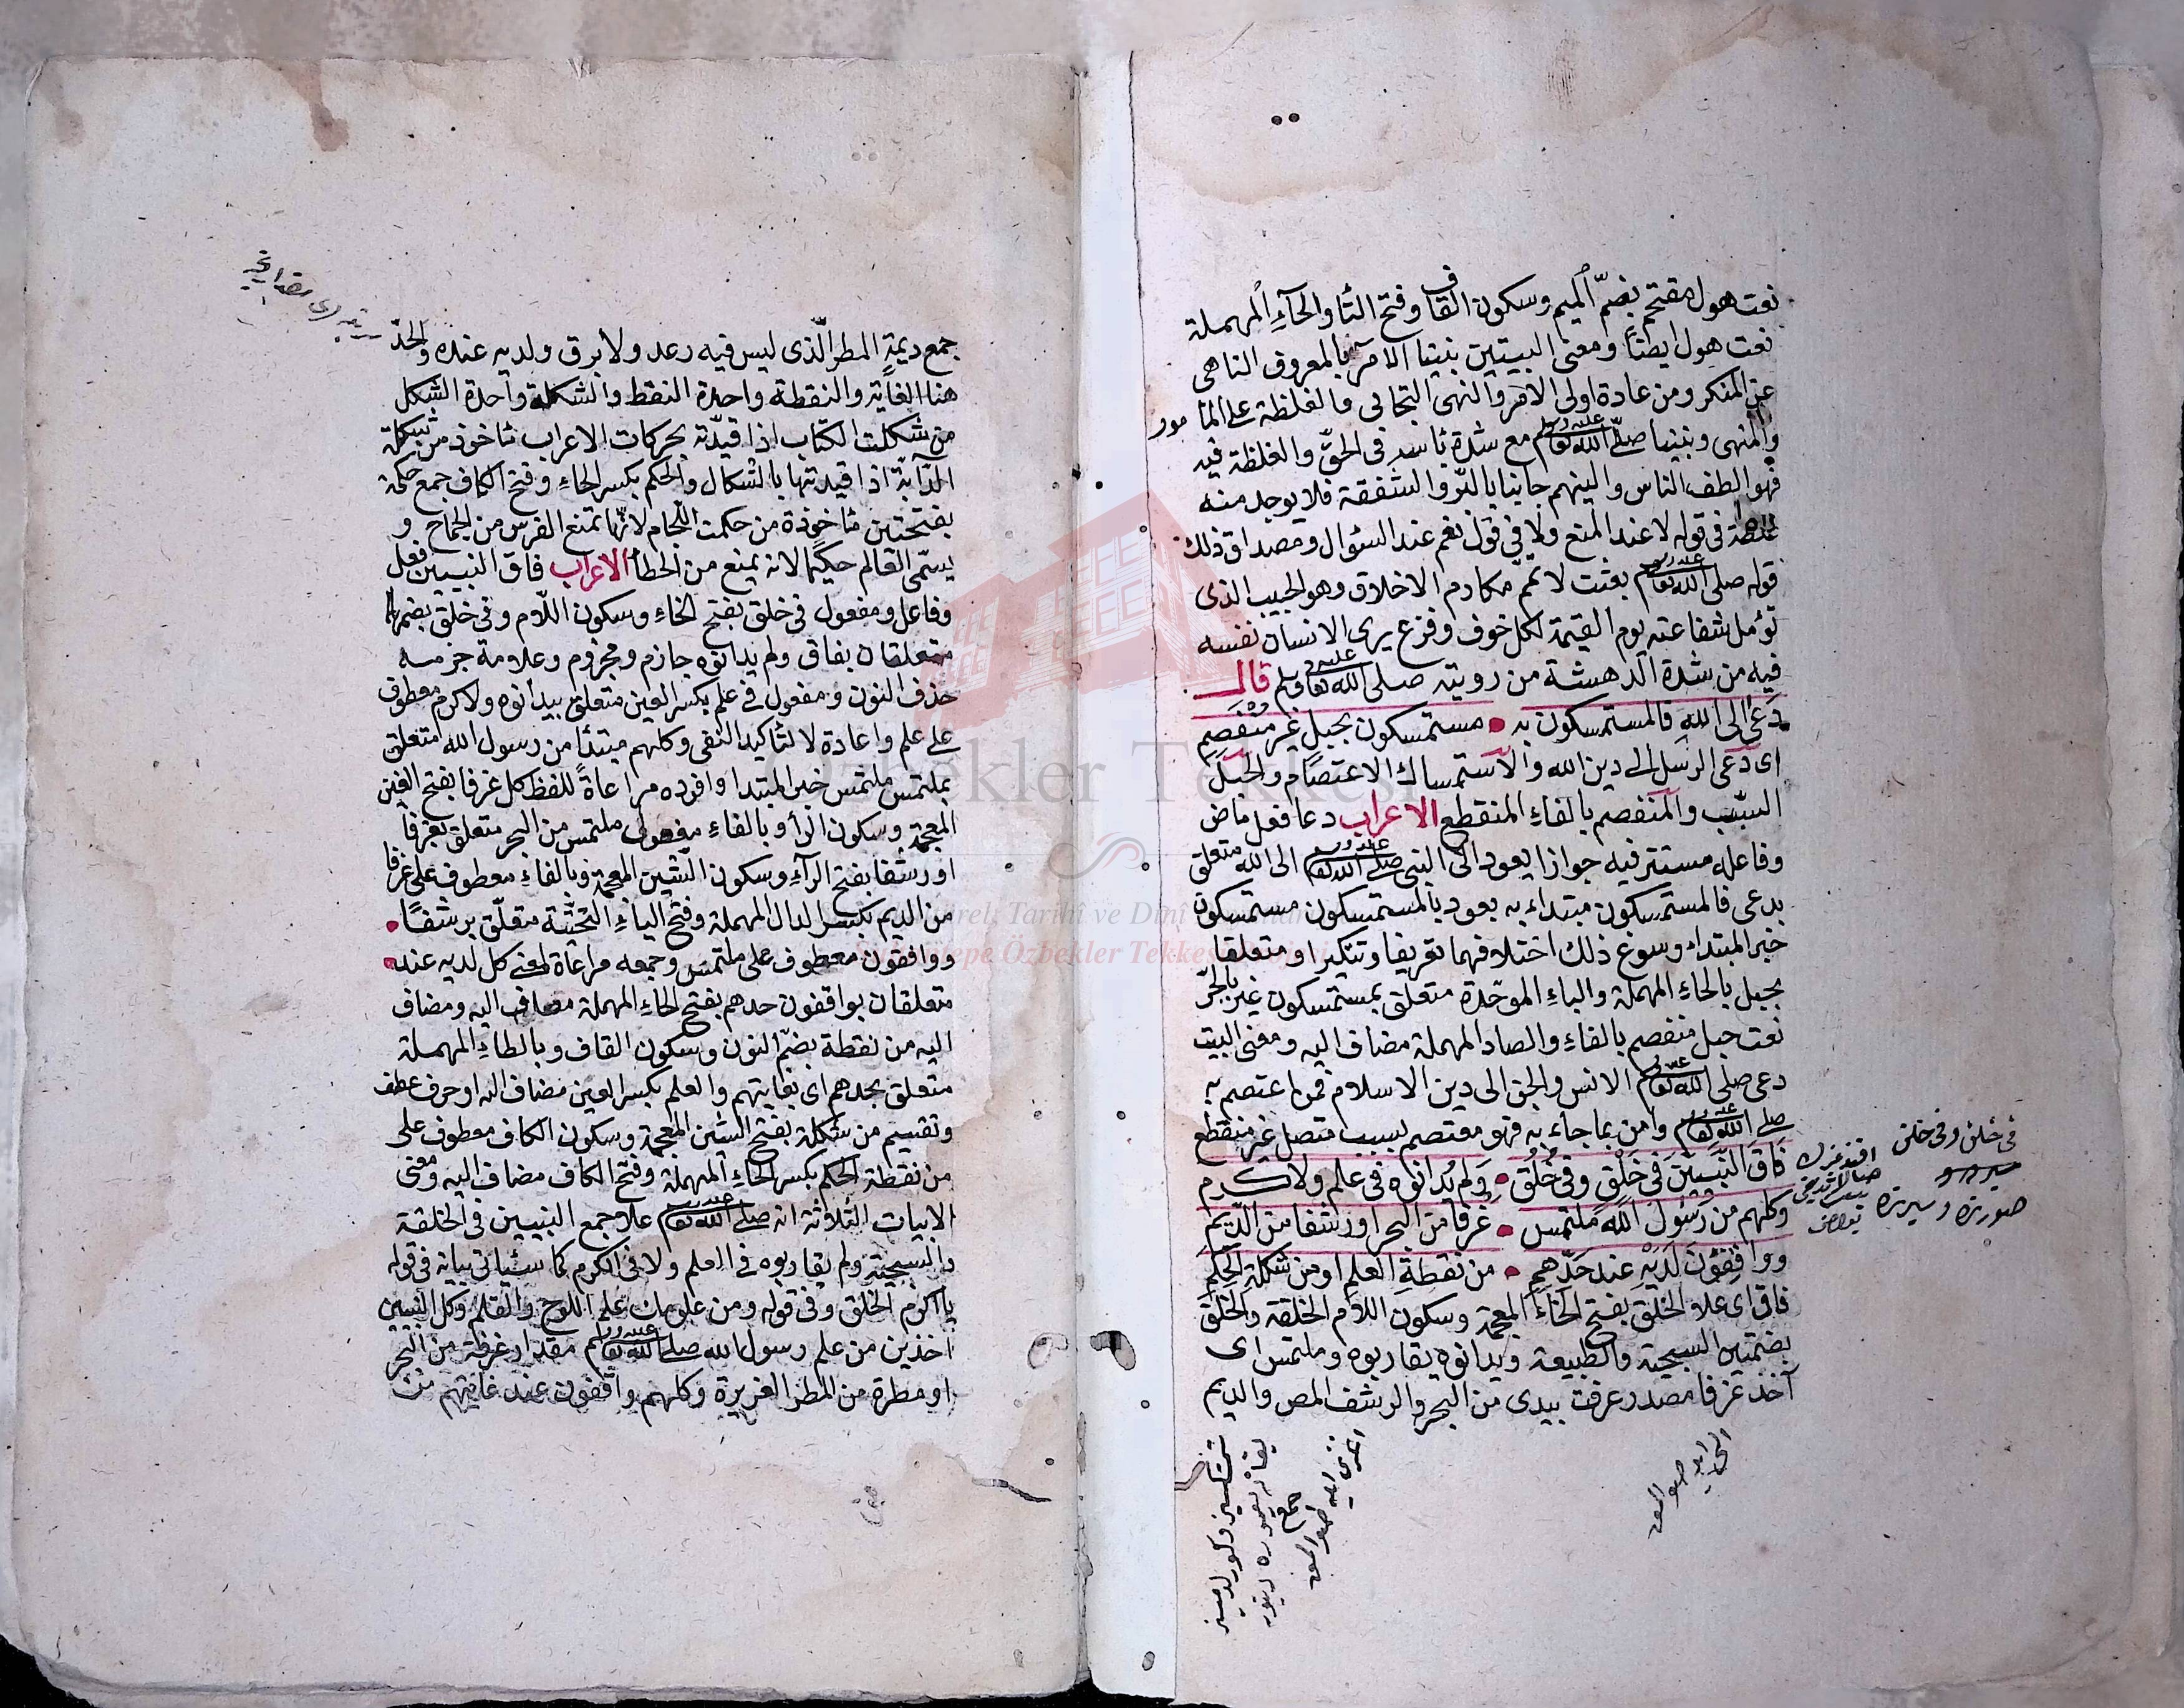 نعت هول مقتحم بضمّ الميم وسكون القاف وفتح التا والحآءِ المهملة
نعت هول ايضًا ومعنى البيتين نبينا الآمر بالمعروف الناهى
عن المنكر ومن عادة اولى الامر والنهى التجافى والغلظة على المامور
والمنهى ونبينا صلى الله تعالى عليه وسلم مع شدة باسه فى الحقّ والغلظة فيه
فهو الطف الناس والينهم جانبا بالبرّ والشفقة فلا يوجد منه
غلظة فى قوله لا عند المنع ولا فى قول نعم عند السئوال ومصداق ذلك
قوله صلى الله تعالى عليه وسلم بعثت لاتمم مكارم الاخلاق وهو الحبيب الذى
تؤمل شفاعته يوم القيمة لكل خوف وفزع يرى الانسان نفسه
فيه من شدة الدهشة من رويته صلى الله تعالى عليه وسلم قال
دَعَى الى اللهِ فالمستمسكون به • مستمسكون بحبلٍ غير منفصم
اى دعى الرسل الى دين الله والاستمساك الاعتصام والحبل
السبّب والمنفصم بالفاءِ المنقطع الاعراب دعا فعل ماض
وفاعله مستتر فيه جوازا يعود الى النبى صلى الله تعالى عليه وسلم الى الله متعلق
بدعى فالمستمسكون مبتداء به يعود بالمستمسكون مستمسكون
خبر المبتداء وسوغ ذلك اختلافهما تعريفا وتنكيرا ومتعلقا
بحبل بالحاءِ المهملة والباءِ الموحّدة متعلق بمستمسكون غير بالجرّ
نعت حبل منفصم بالفاءِ والصاد المهملة مضاف اليه ومعنى البيت
دعى صلى الله تعالى عليه وسلم الانس والجن الى دين الاسلام فمن اعتصم به
صلى الله تعالى عليه وسلم وامن بما جاءَ به فهو معتصم بسبب متصل غير منقطع
فَاقَ النَّبيّينَ فى خَلْقٍ وفى خُلُقٍ • وَلم يُدانوه فى علمٍ ولا كرم
وكلهم من رَسُول اللهِ ملتمس • غرفا من البحر او رشفا من الدِّيَم
وواقِفُونَ لَدَيْهِ عند حَدِّهِم • من نقطةِ العلم او من شكلة الحِكَمِ
فاق اى علا الخلق بفتح الخاءِ المعجمة وسكون اللام الخلقة والخلق
بضمتين السجية والطبيعة ويدانوه يقاربوه وملتمس اى
آخذ غرفا مصدر غرفت بيدى من البحر والرشف المص والديم
فى خلق وفى خلق
جمع
جمع ديمة المطر الّذى ليس فيه رعد ولا برق ولديه عنده والحدّ
هنا الغاية والنقطة واحدة النقط والشكلة واحدة الشكل
من شكلت الكتاب اذا قيدّته بحركات الاعراب ماخوذ من شكلة
الدّآبة اذا قيدتها بالشكال والحكم بكسر الحاءِ وفتح الكاف جمع حكمة
بفتحتين ماخوذة من حكمت اللّجام لانّها تمنع الفرس من الجماح و
يسمّى العالم حكيما لانه يمنع من الخطأ الاعراب فاق النبيين فعل
وفاعل ومفعول فى خلق بفتح الخاءِ وسكون اللّام وفى خلق بضمها
متعلقان بفاق ولم يدانوه جازم ومجزوم وعلامة جزمه
حذف النون ومفعول فى علم بكسر العين متعلق بيدانوه ولا كرم معطوف
على علم واعادة لا لتأكيد النفى وكلهم مبتدأ من رسول الله متعلق
بملتمس ملتمس خبر المبتدا وافرده مراعاةً للفظ كل غرفا بفتح الغين
المعجمة وسكون الرا وبالفاءِ مفعول ملتمس من البحر متعلق بغرفا
او رشفا بفتح الرآءِ وسكون الشين المعجمة وبالفاءِ معطوف على غرفا
من الديم بكسر الدال المهملة وفتح الياءِ التحتّية متعلّق برشفًا •
وواقفون معطوف على ملتمس وجمعه مراعاة لمعنى كل لديه عند •
متعلقان بواقفون حدهم بفتح الحاءِ المهملة مضاف اليه ومضاف
اليه من نقطة بضمّ النون وسكون القاف وبالطاءِ المهملة
متعلق بحدهم اى بغايتهم والعلم بكسر العين مضاف اليه او حرف عطف
وتقسيم من شكلة بفتح الشين المعجمة وسكون الكاف معطوف على
من نقطة الحكم بكسر الحاءِ المهملة وفتح الكاف مضاف اليه ومعنى
الابيات الثلاثة انه صلى الله تعالى عليه وسلم علا جميع النبيين فى الخلقة
والسجية ولم يقاربوه فى العلم ولا فى الكرم كما سيأتى بيانه فى قوله
يا اكرم الخلق وفى قوله ومن علومك علم اللوح والقلم وكل النبيين
اخذين من علم رسول الله صلى الله تعالى عليه وسلم مقدار غرفة من البحر
او مطرة من المطر الغزيرة وكلهم واقفون عند غايتهم من